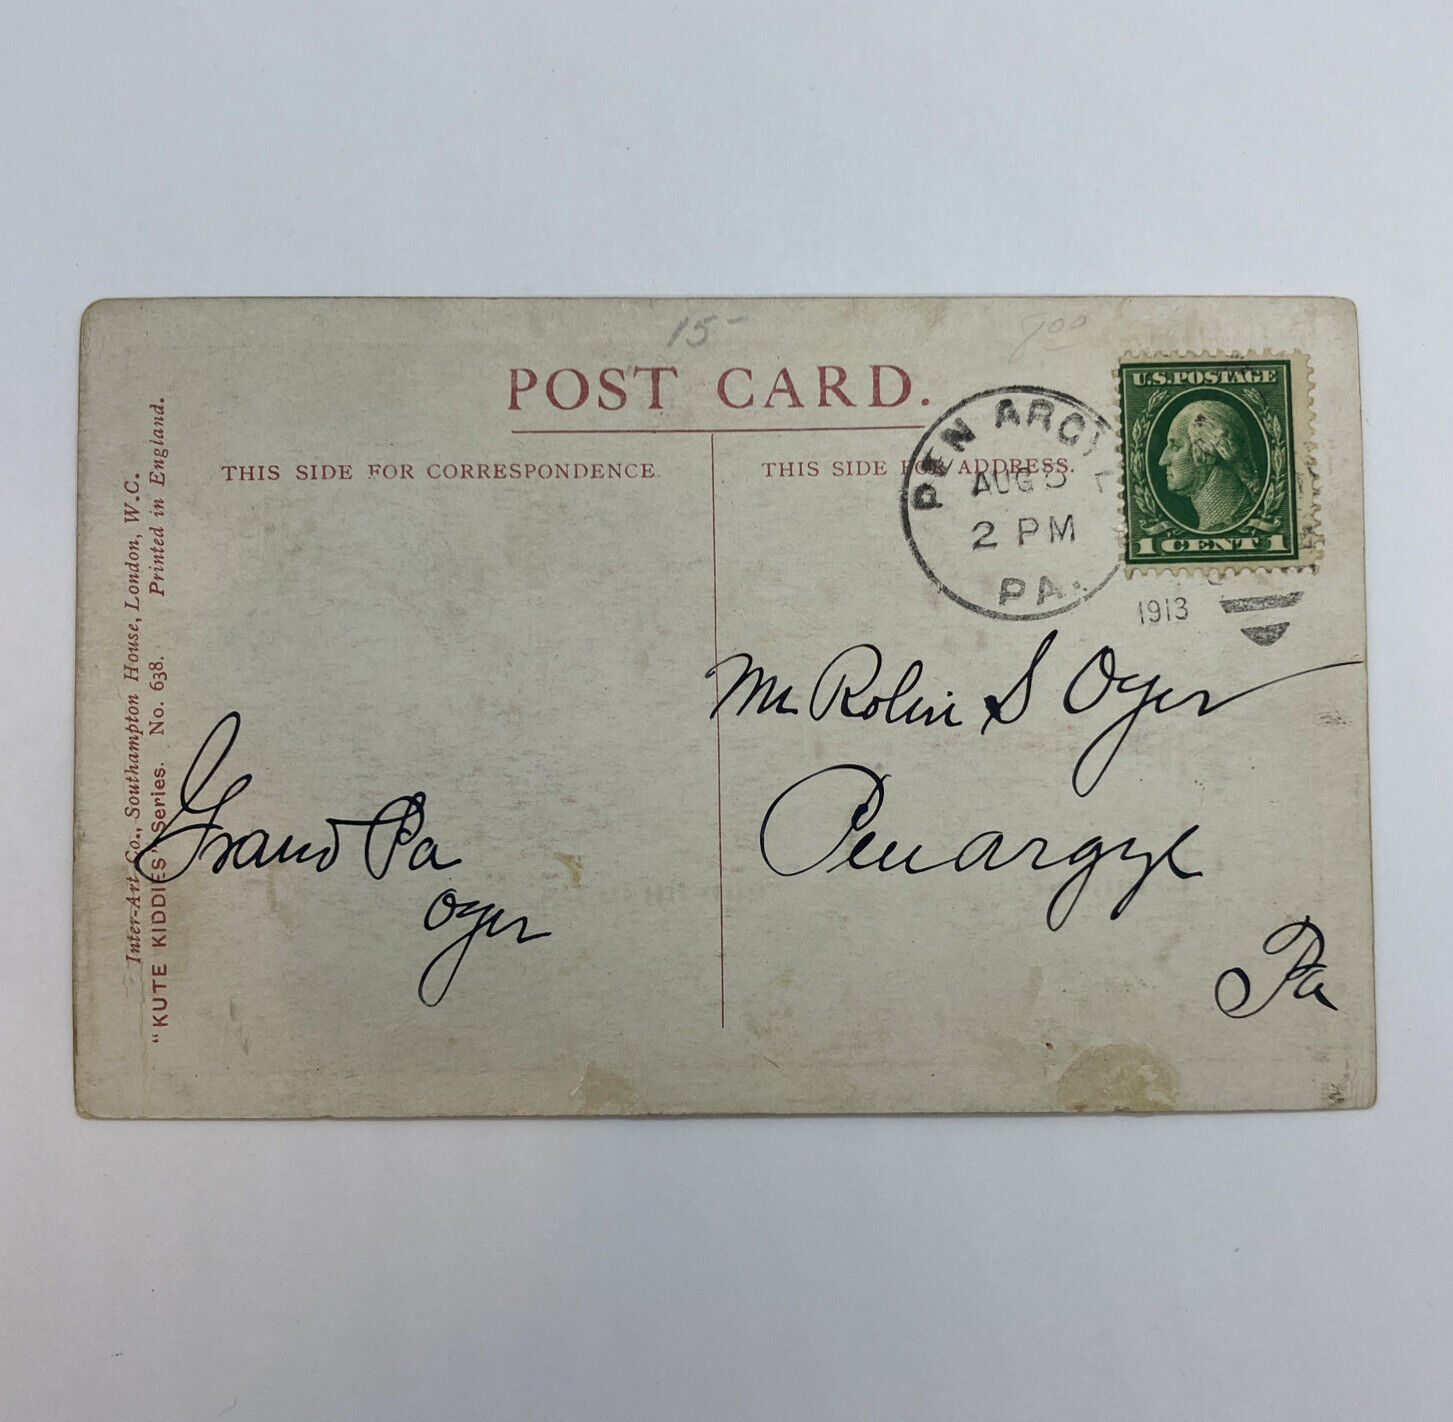 15-
POST CARD.
THIS SIDE FOR CORRESPONDENCE.
THIS SIDE FOR ADDRESS.
PEN ARGYL
AUG
2 PM
PA.
1913
U.S. POSTAGE
1 CENT 1
Mr Robin S Oyer
Penargyl
Pa
Grand Pa
Oyer
Inter-Art Co., Southampton House, London, W.C.
"KUTE KIDDIES" Series. No. 638. Printed in England.